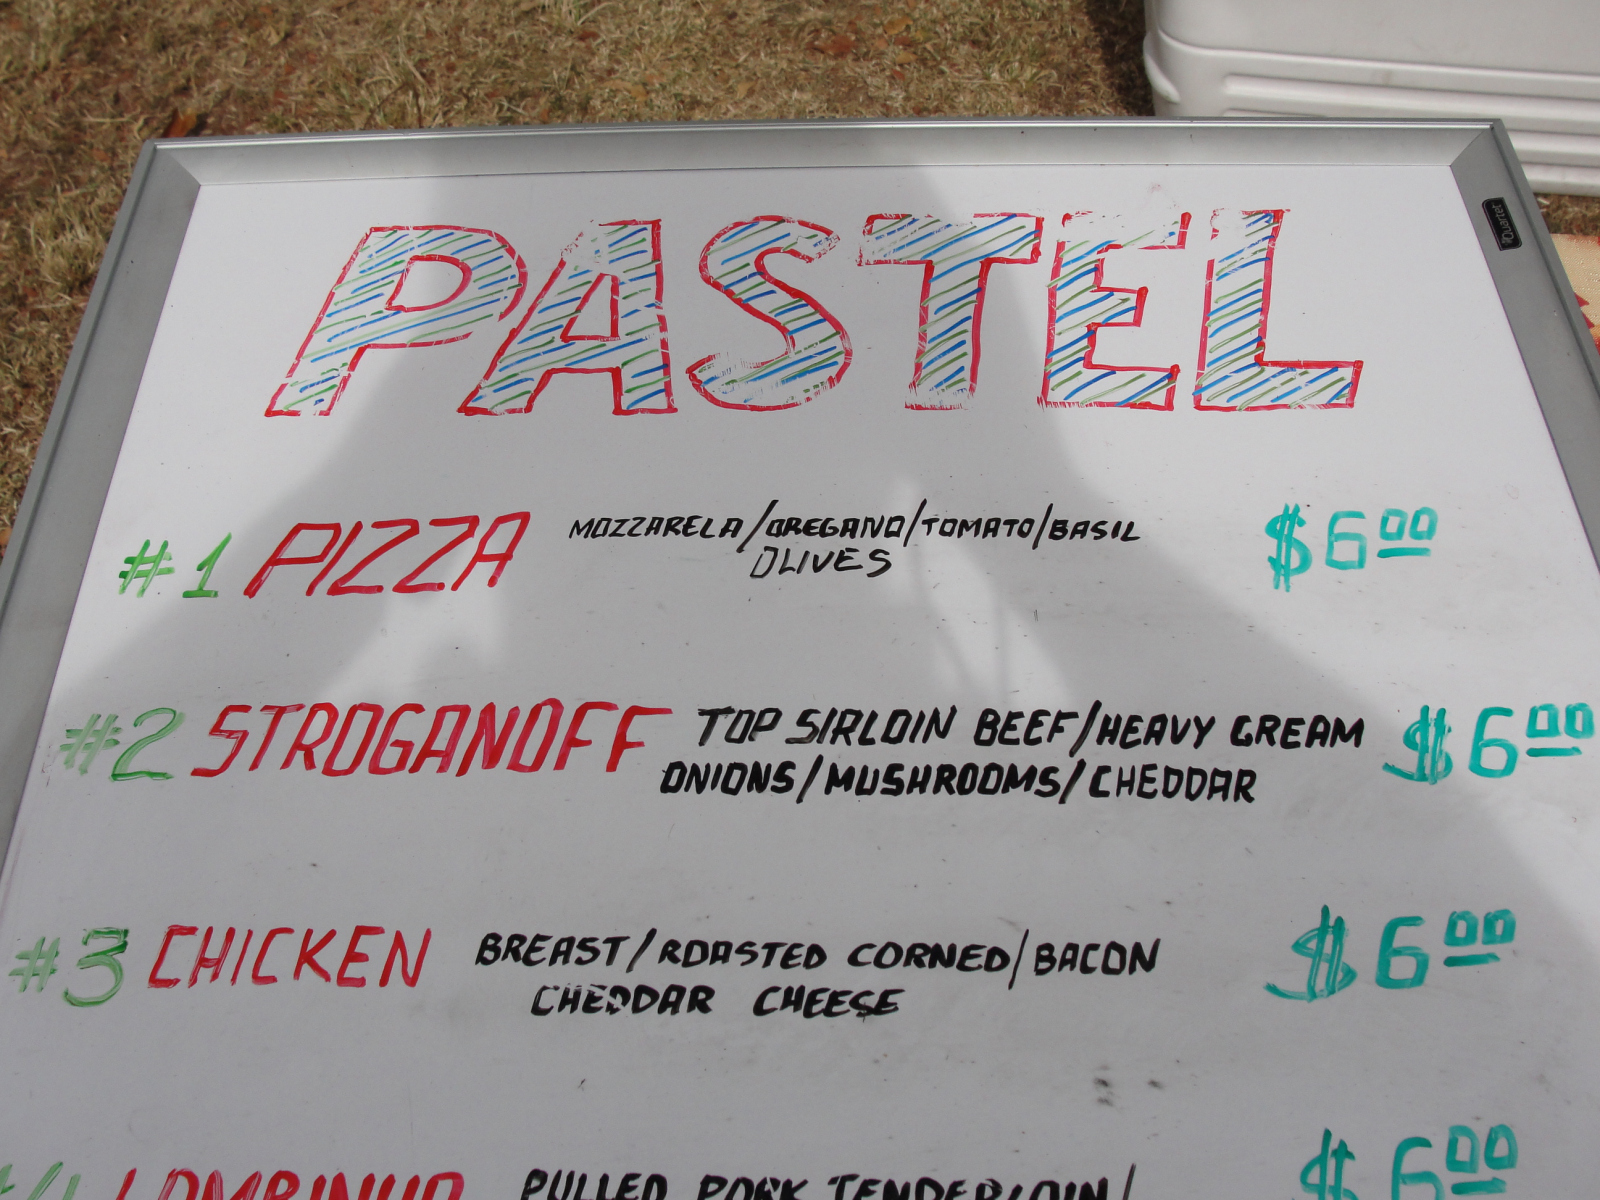 PASTEL
Quartet
#1 PIZZA MOZZARELA/OREGANO/TOMATO/BASIL $6.00
OLIVES
#2 STROGANOFF TOP SIRLOIN BEEF/HEAVY CREAM $6.00
ONIONS/MUSHROOMS/CHEDDAR
#3 CHICKEN BREAST/ROASTED CORNED/BACON $6.00
CHEDDAR CHEESE
#4 LOMBINHO PULLED PORK TENDERLOIN/ $6.00